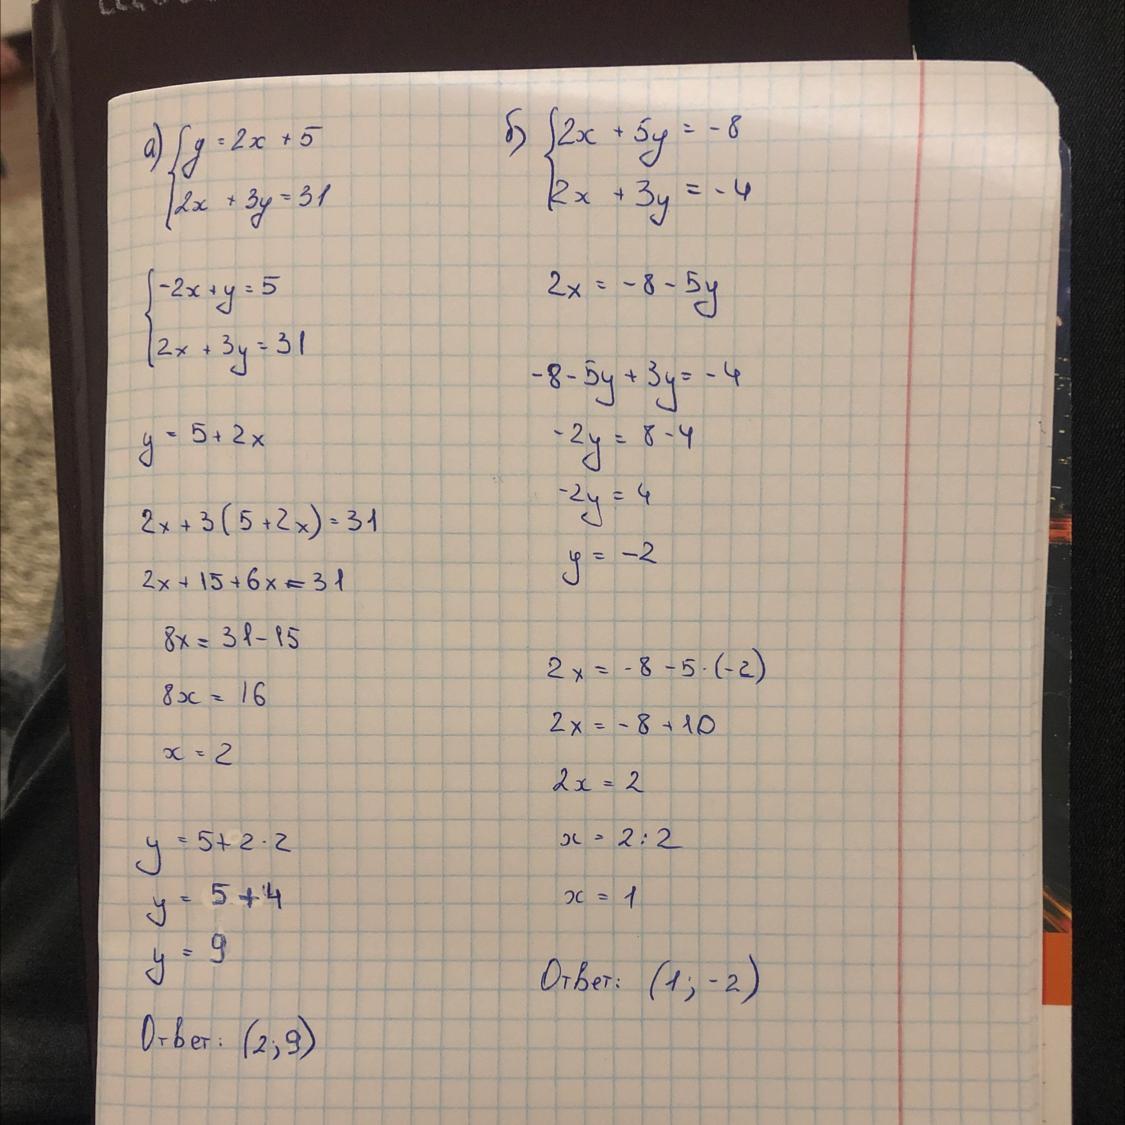 а) { y = 2x + 5
2x + 3y = 31
{ -2x + y = 5
2x + 3y = 31
y = 5 + 2x
2x + 3(5 + 2x) = 31
2x + 15 + 6x = 31
8x = 31 - 15
8x = 16
x = 2
y = 5 + 2 · 2
y = 5 + 4
y = 9
Ответ: (2; 9)
б) { 2x + 5y = -8
2x + 3y = -4
2x = -8 - 5y
-8 - 5y + 3y = -4
-2y = 8 - 4
-2y = 4
y = -2
2x = -8 - 5 · (-2)
2x = -8 + 10
2x = 2
x = 2 : 2
x = 1
Ответ: (1; -2)